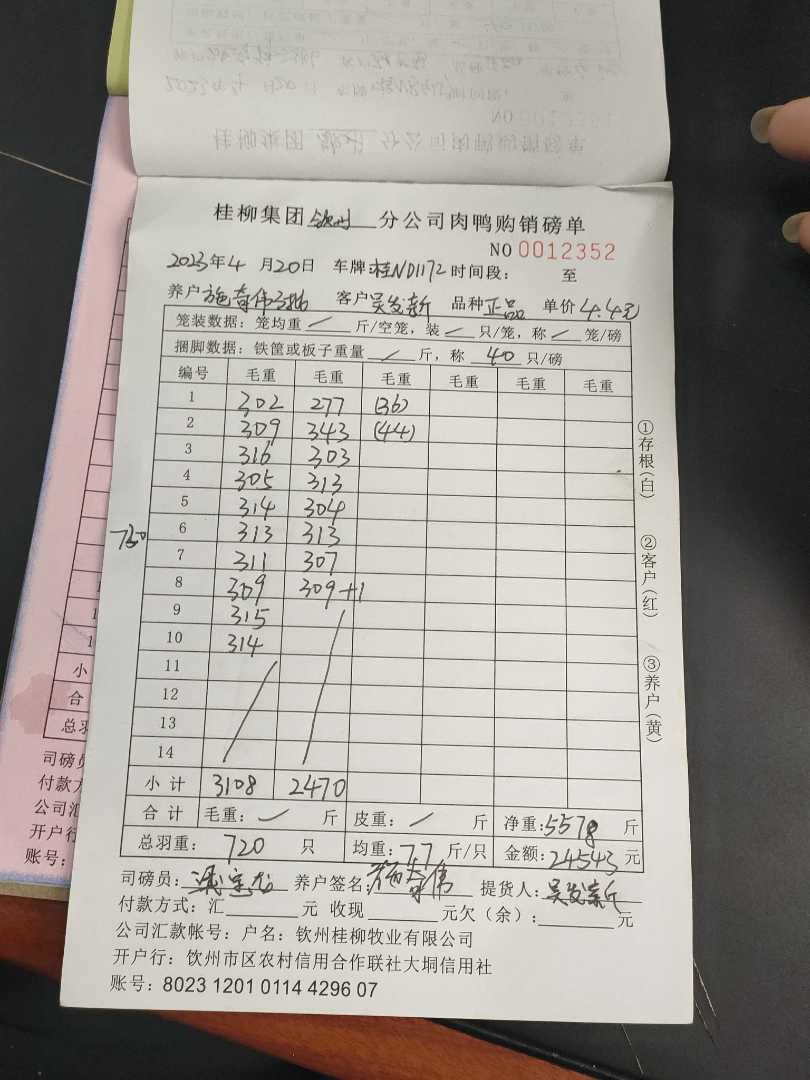 桂柳集团钦州分公司肉鸭购销磅单
NO 0012352
2023年4月20日 车牌:桂ND1172 时间段: 至
养户施奇伟3批 客户吴发新 品种正品 单价4.4元
笼装数据:笼均重/斤/空笼,装/只/笼,称/笼/磅
捆脚数据:铁筐或板子重量/斤,称 40 只/磅
编号 毛重 毛重 毛重 毛重 毛重 毛重
1 302 277 (36)
2 309 343 (44)
3 316 303
4 305 313
5 314 304
6 313 313
7 311 307
8 309 309+1
9 315
10 314
11
12
13
14
小计 3108 2470
合计 毛重:/斤 皮重:/斤 净重:5578斤
总羽重:720只 均重:7.7斤/只 金额:24543元
司磅员: 养户签名:施奇伟 提货人:吴发新
付款方式:汇 元 收现 元欠(余): 元
公司汇款帐号:户名:钦州桂柳牧业有限公司
开户行:钦州市区农村信用合作联社大垌信用社
账号:8023 1201 0114 4296 07
①存根(白) ②客户(红) ③养户(黄)
小
合
总羽
司磅员
付款方
公司汇
开户行
账号: